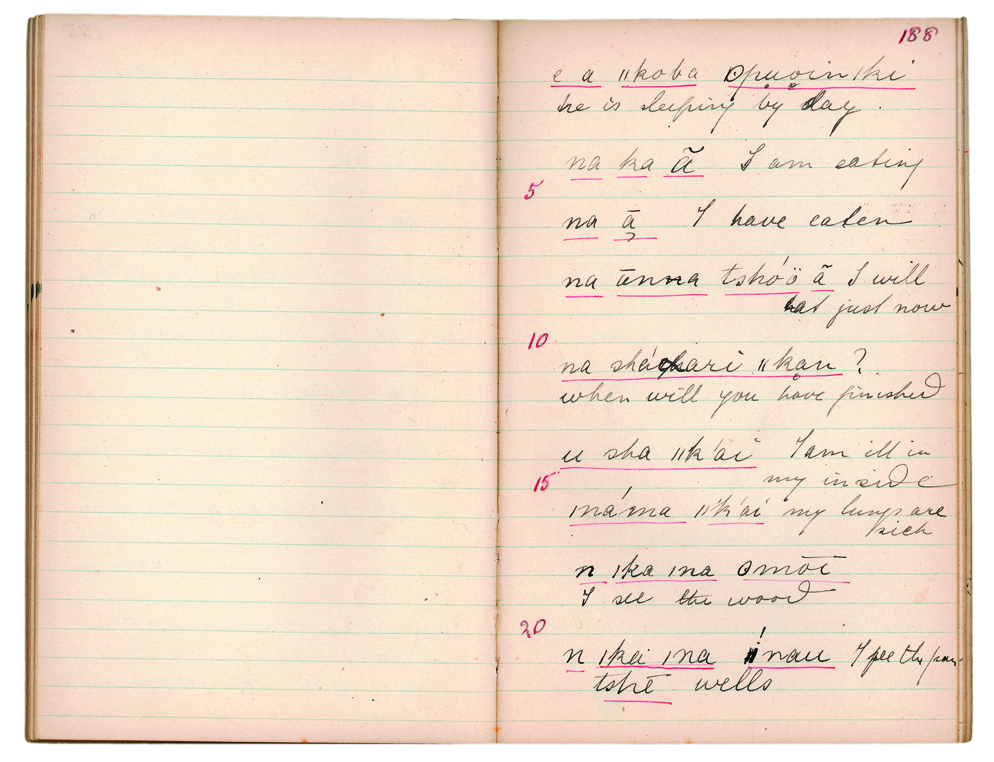 188
e a ǁkoba ʘpuoinǀki
he is sleeping by day.
na ka ã I am eating
5
na ā I have eaten
na ūnna tshó'ö ã I will
eat just now
10
na shá ǁkau?
when will you have finished
u sha ǁk'ai I am ill in
my inside
15
ǀná'ma ǁk'ai my lungs are
sick
n ǀka ǀna ʘmōï
I see the wood
20
n ǀkai ǀna ǀnau I see the
tshē wells